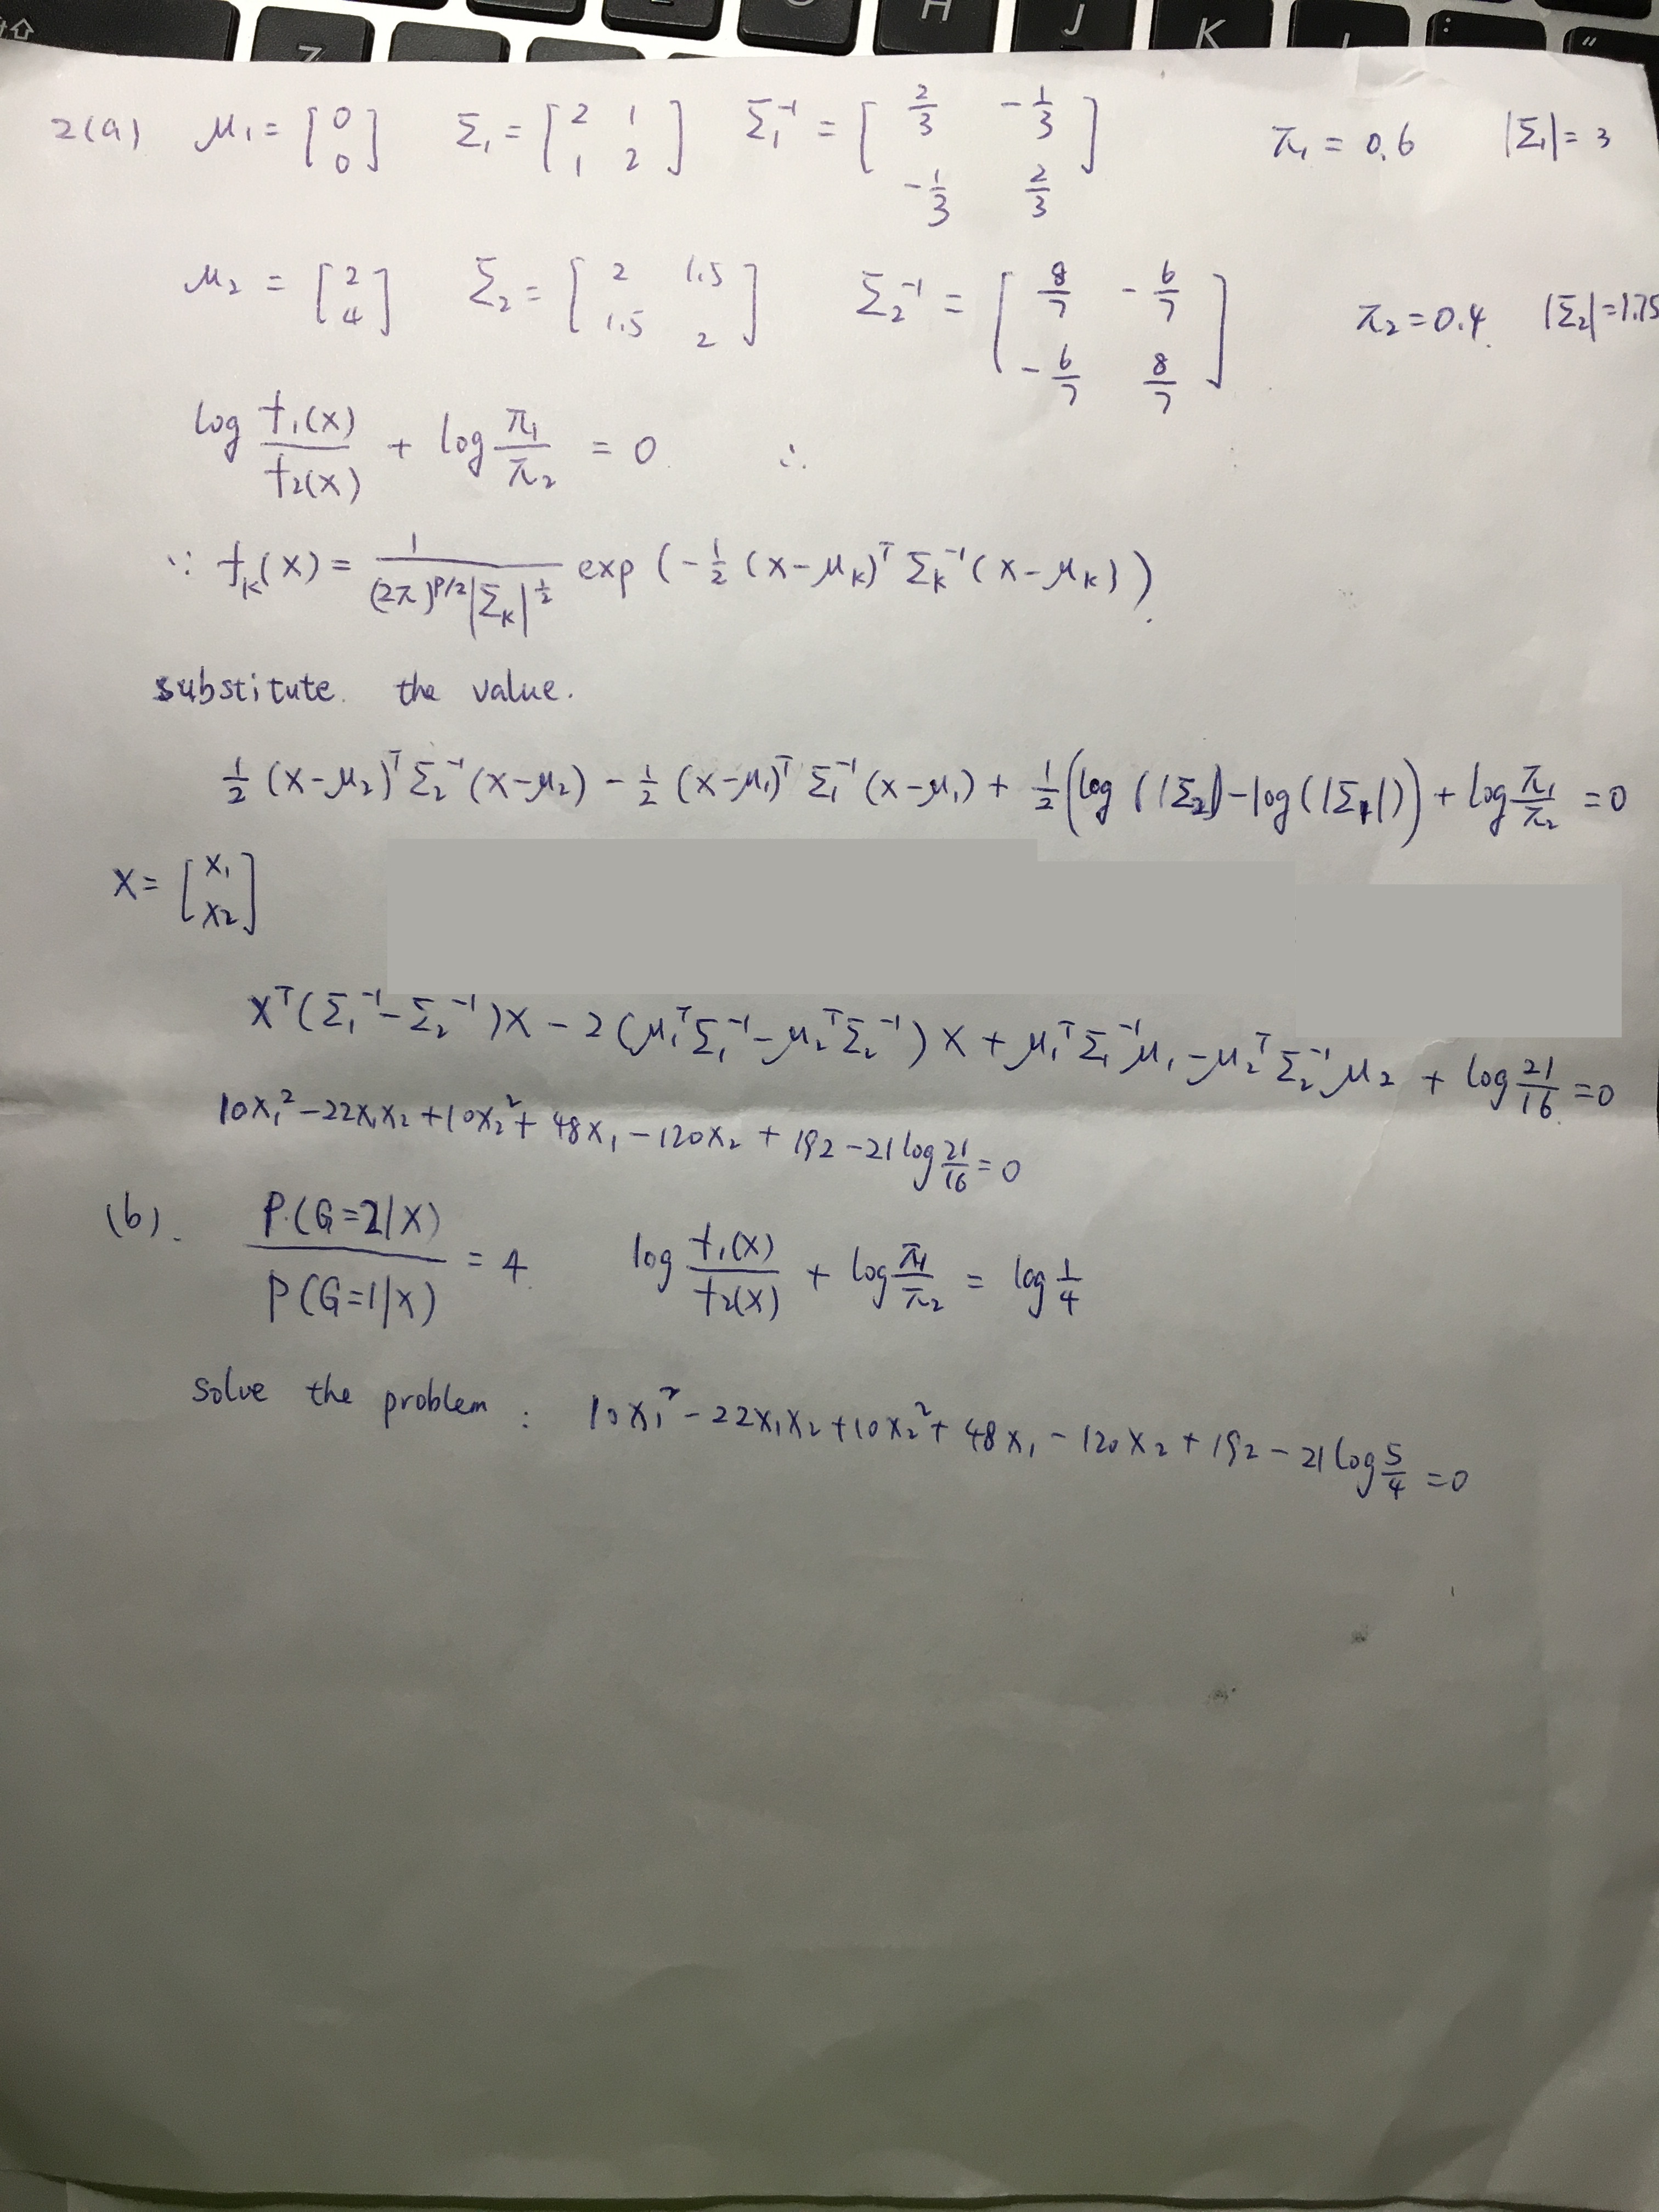 Z H J K L : "
2(a) μ₁ = [0 0] Σ₁ = [2 1 1 2] Σ₁⁻¹ = [2/3 -1/3 -1/3 2/3] π₁ = 0.6 |Σ₁| = 3
μ₂ = [2 4] Σ₂ = [2 1.5 1.5 2] Σ₂⁻¹ = [8/7 -6/7 -6/7 8/7] π₂ = 0.4. |Σ₂| = 1.75
log f₁(x)/f₂(x) + log π₁/π₂ = 0 ∴
∵ f_K(x) = 1/((2π)^{p/2}|Σ_K|^{1/2}) exp(-1/2 (x-μ_K)ᵀ Σ_K⁻¹ (x-μ_K)).
substitute. the value.
1/2 (x-μ₂)ᵀ Σ₂⁻¹ (x-μ₂) - 1/2 (x-μ₁)ᵀ Σ₁⁻¹ (x-μ₁) + 1/2 (log (|Σ₂|) - log(|Σ₁|)) + log π₁/π₂ = 0
x = [x₁ x₂]
xᵀ(Σ₁⁻¹ - Σ₂⁻¹)x - 2(μ₁ᵀΣ₁⁻¹ - μ₂ᵀΣ₂⁻¹)x + μ₁ᵀΣ₁⁻¹μ₁ - μ₂ᵀΣ₂⁻¹μ₂ + log 21/16 = 0
10x₁² - 22x₁x₂ + 10x₂² + 48x₁ - 120x₂ + 192 - 21 log 21/16 = 0
(b). P(G=2|x)/P(G=1|x) = 4 log f₁(x)/f₂(x) + log π₁/π₂ = log 1/4
solve the problem : 10x₁² - 22x₁x₂ + 10x₂² + 48x₁ - 120x₂ + 192 - 21 log 5/4 = 0